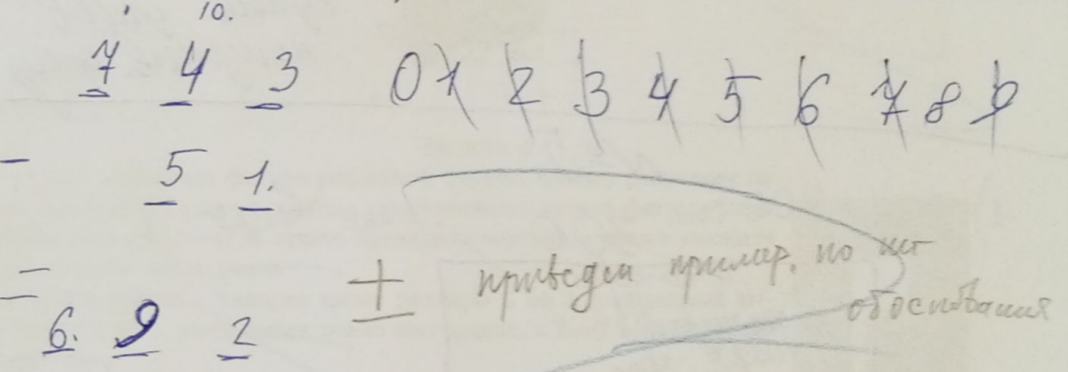 10.
7 4 3 0 1 2 3 4 5 6 7 8 9
- 5 1.
=
6. 9 2
+ приведен пример, но нет
обоснования